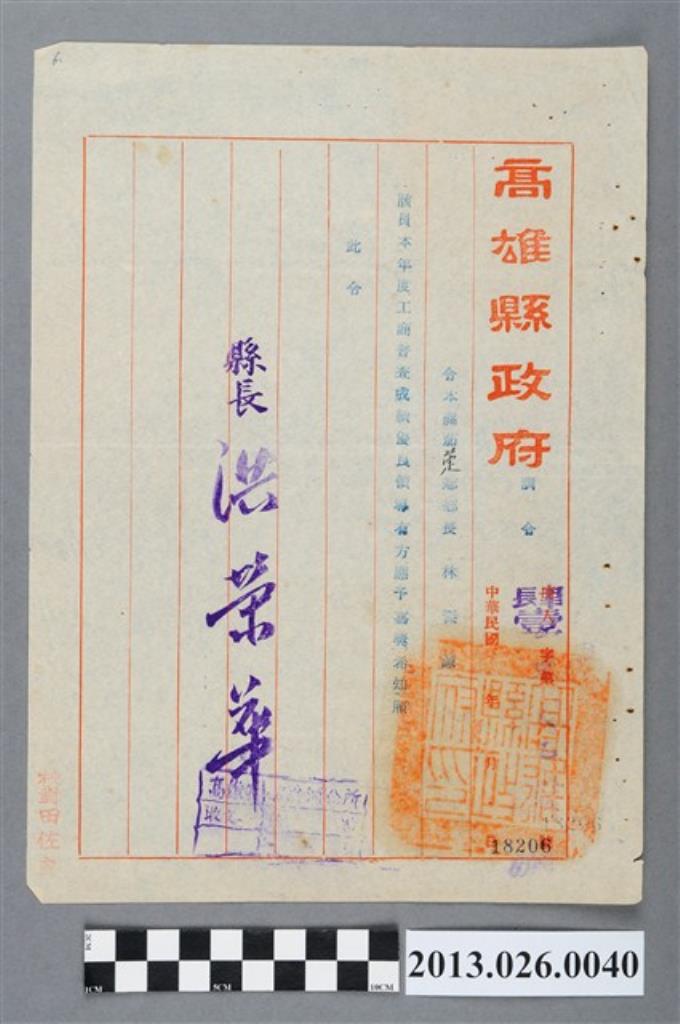 高雄縣政府
訓令
中華民國 年 月 日
18206
令本縣茄萣鄉鄉長 林
該員本年度工商普查成績優良領導有方應予嘉獎希知照
此令
縣長 洪榮華
高雄 公所
收文
校對田佐
2013.026.0040
1CM
5CM
10CM